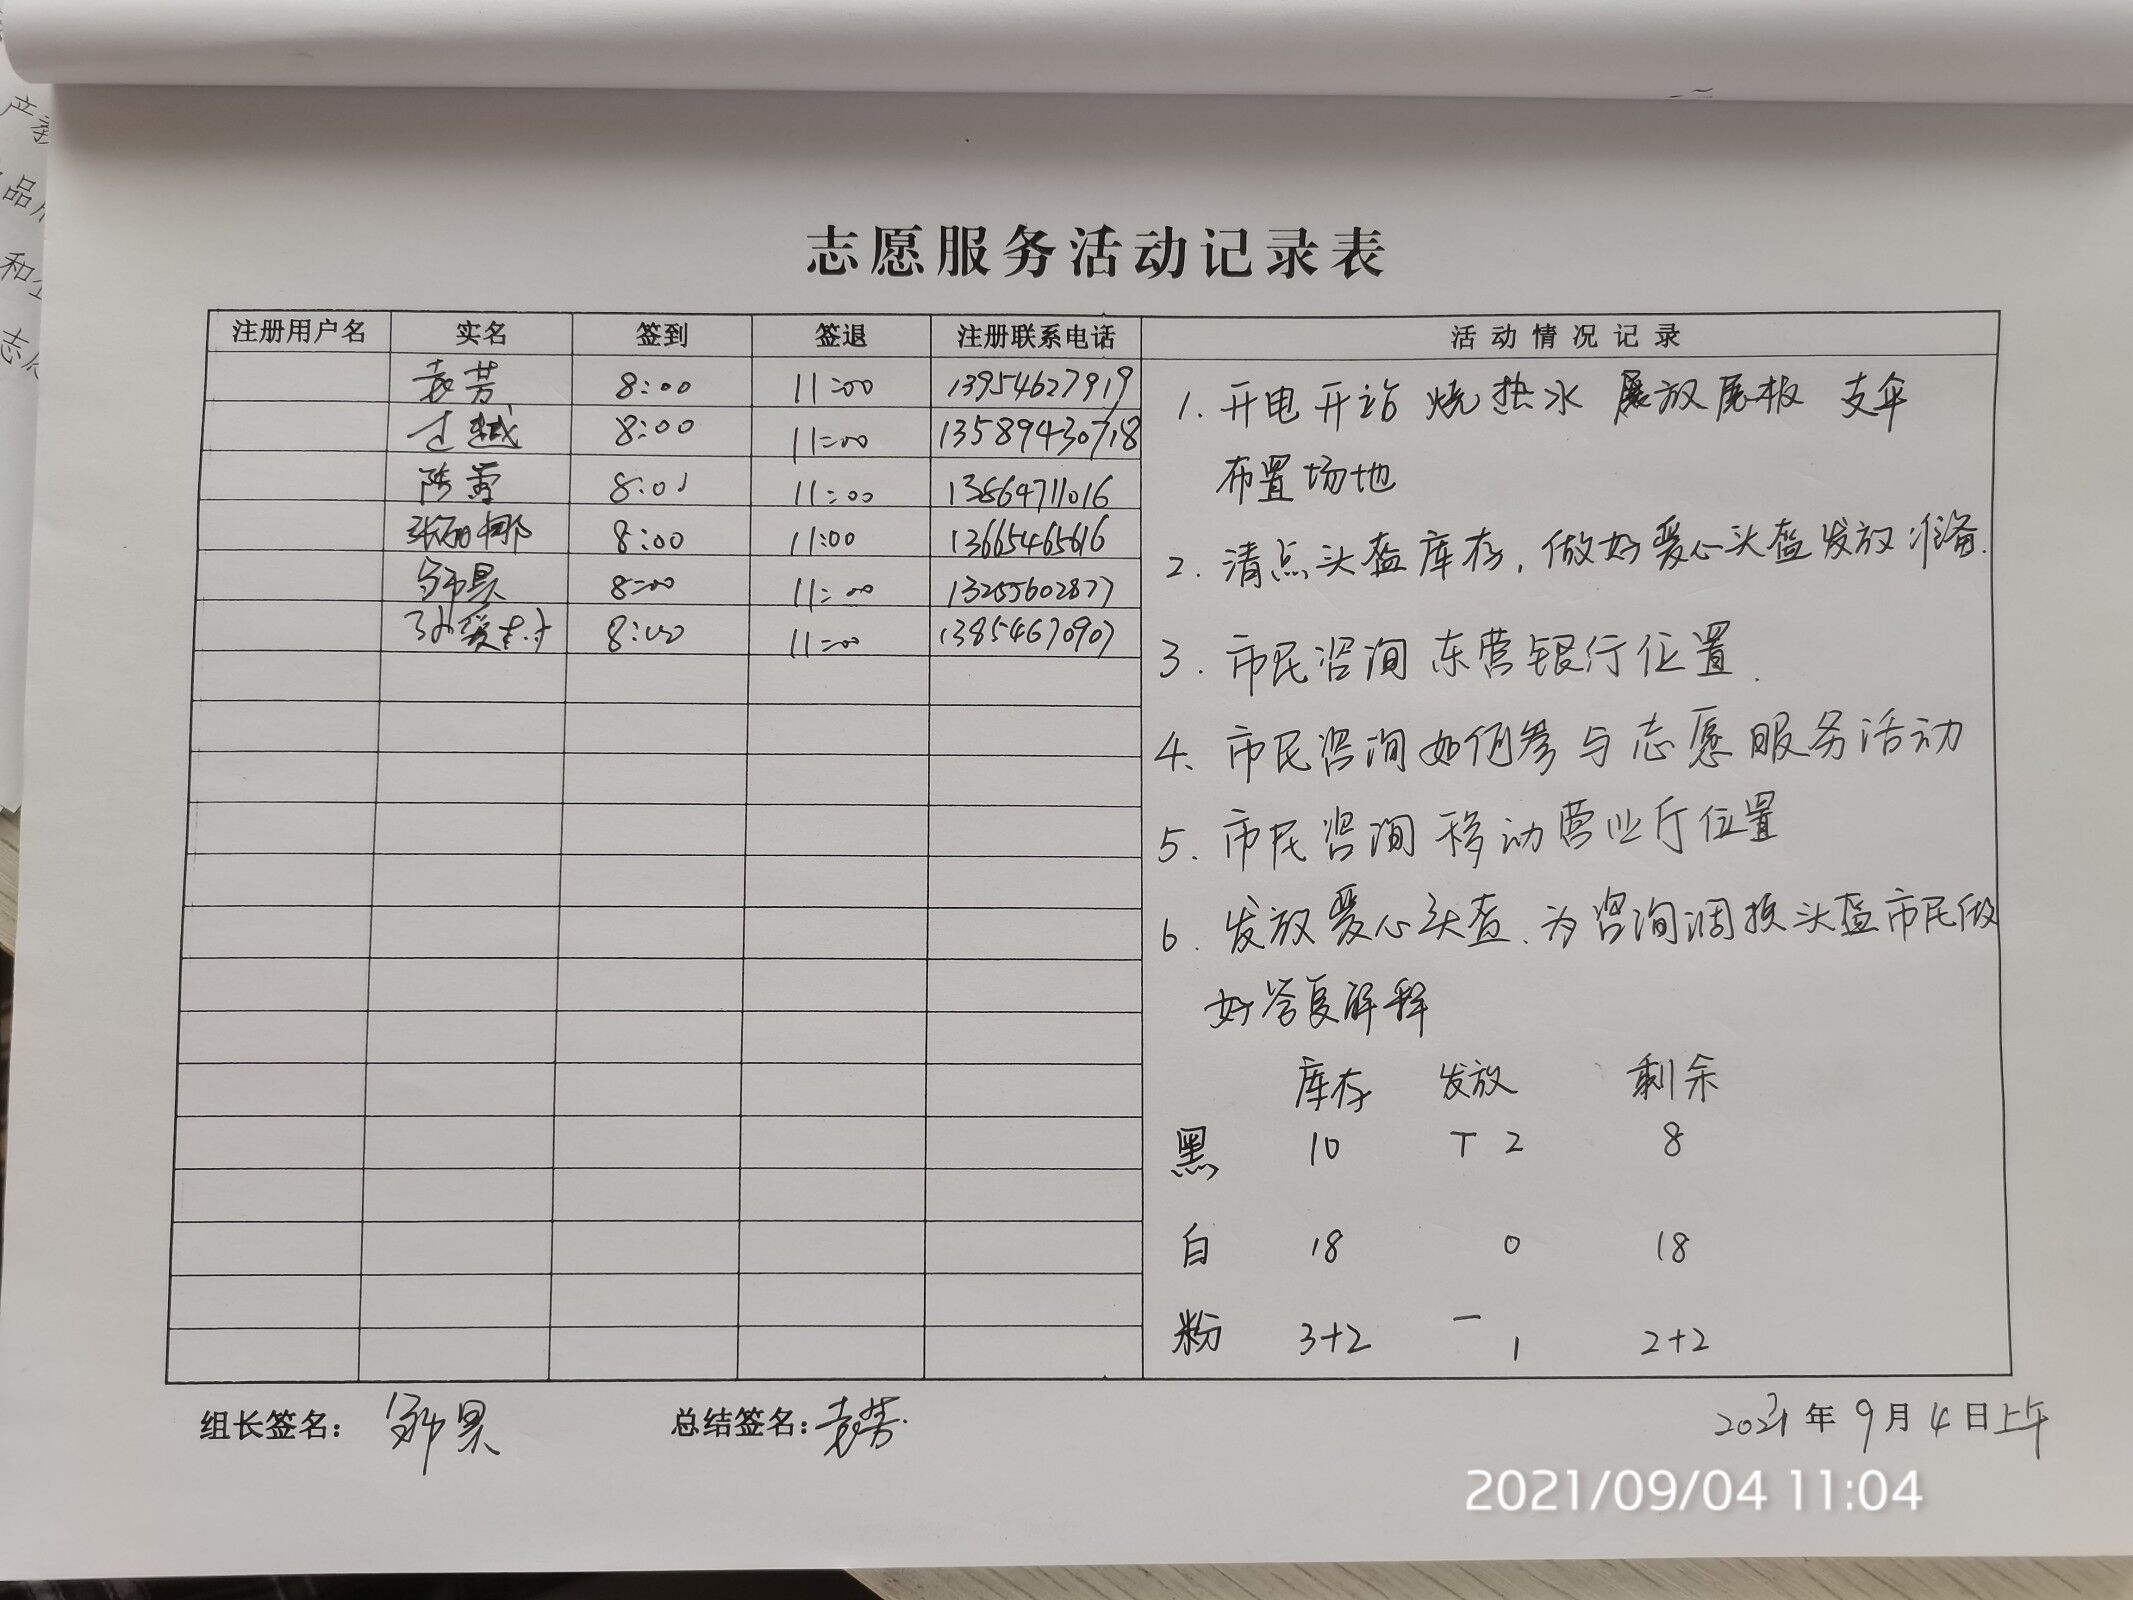 志愿服务活动记录表
注册用户名 实名 签到 签退 注册联系电话 活动情况记录
袁芳 8:00 11:00 13954627919
8:00 11:00 13589430718
陈雪 8:01 11:00 13864711016
张丽娜 8:00 11:00 13665465616
8:00 11:00 13255602877
8:00 11:00 13854670907
1. 开电开站 烧热水 展放展板 支伞
布置场地
2. 清点头盔库存,做好爱心头盔发放准备.
3. 市民咨询东营银行位置.
4. 市民咨询如何参与志愿服务活动
5. 市民咨询移动营业厅位置
6. 发放爱心头盔、为咨询调换头盔市民做
好答复解释
库存 发放 剩余
黑 10 T 2 8
白 18 0 18
粉 3+2 一 1 2+2
组长签名: 总结签名:袁芳.
2021年9月4日上午
2021/09/04 11:04
产
品
和
志